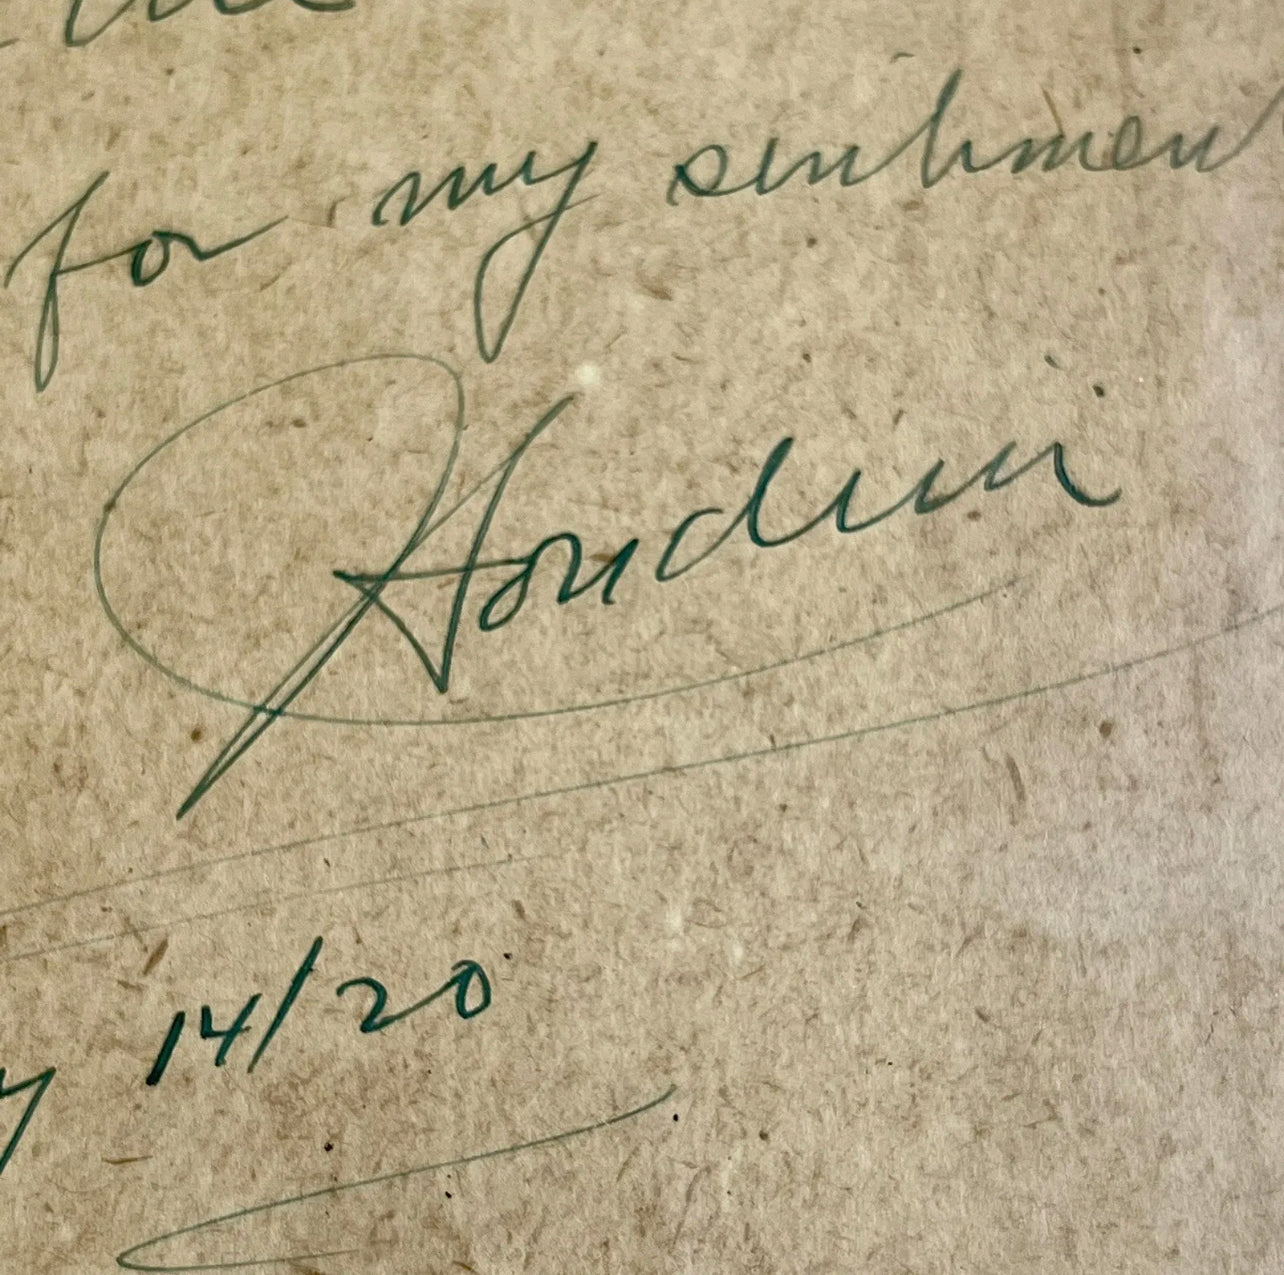 for my sentiment
Houdini
y 14/20